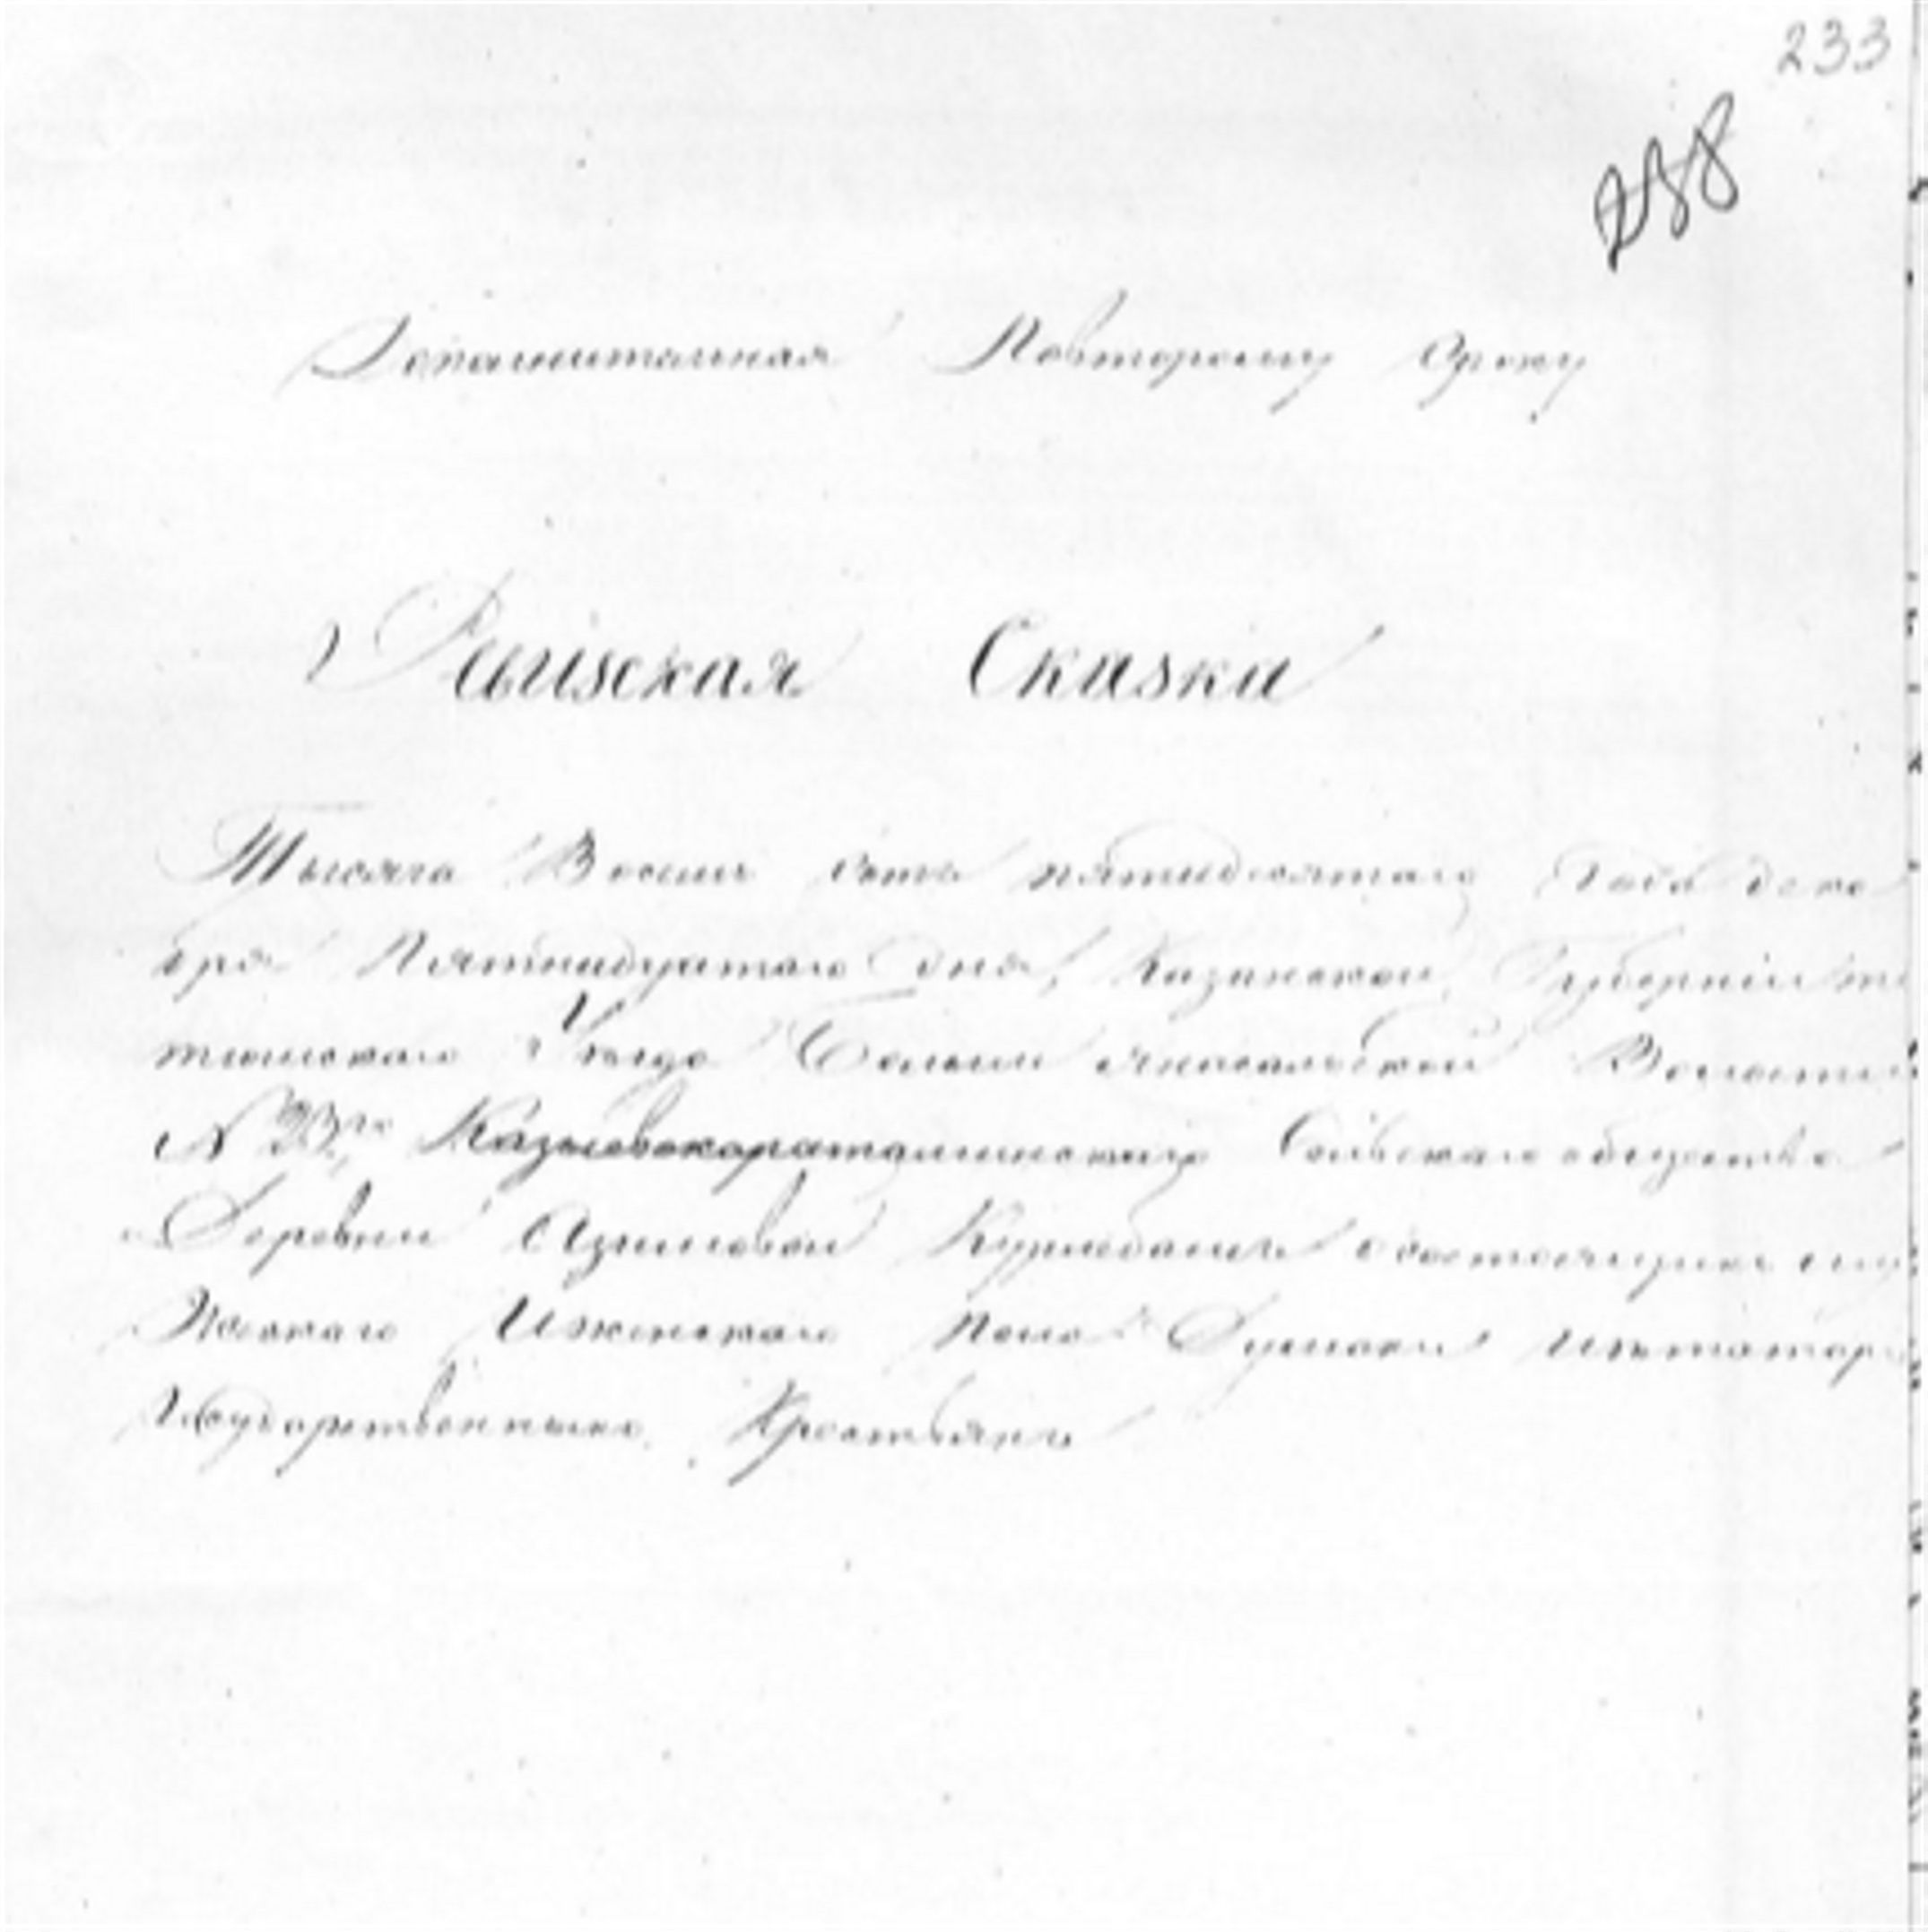 233
238
Дополнительная Повторому Сроку
Ревизская Сказка
Тысяча Восемь сотъ пятидесятаго Года дека
бря Пятнадцатаго дня, Казанской Губерніи те
тюшскаго Уѣзда Больше Волости
N 23го Сельскаго общества
Деревни Азимовой Курлебашъ состоящихъ
Государственныхъ Крестьянъ